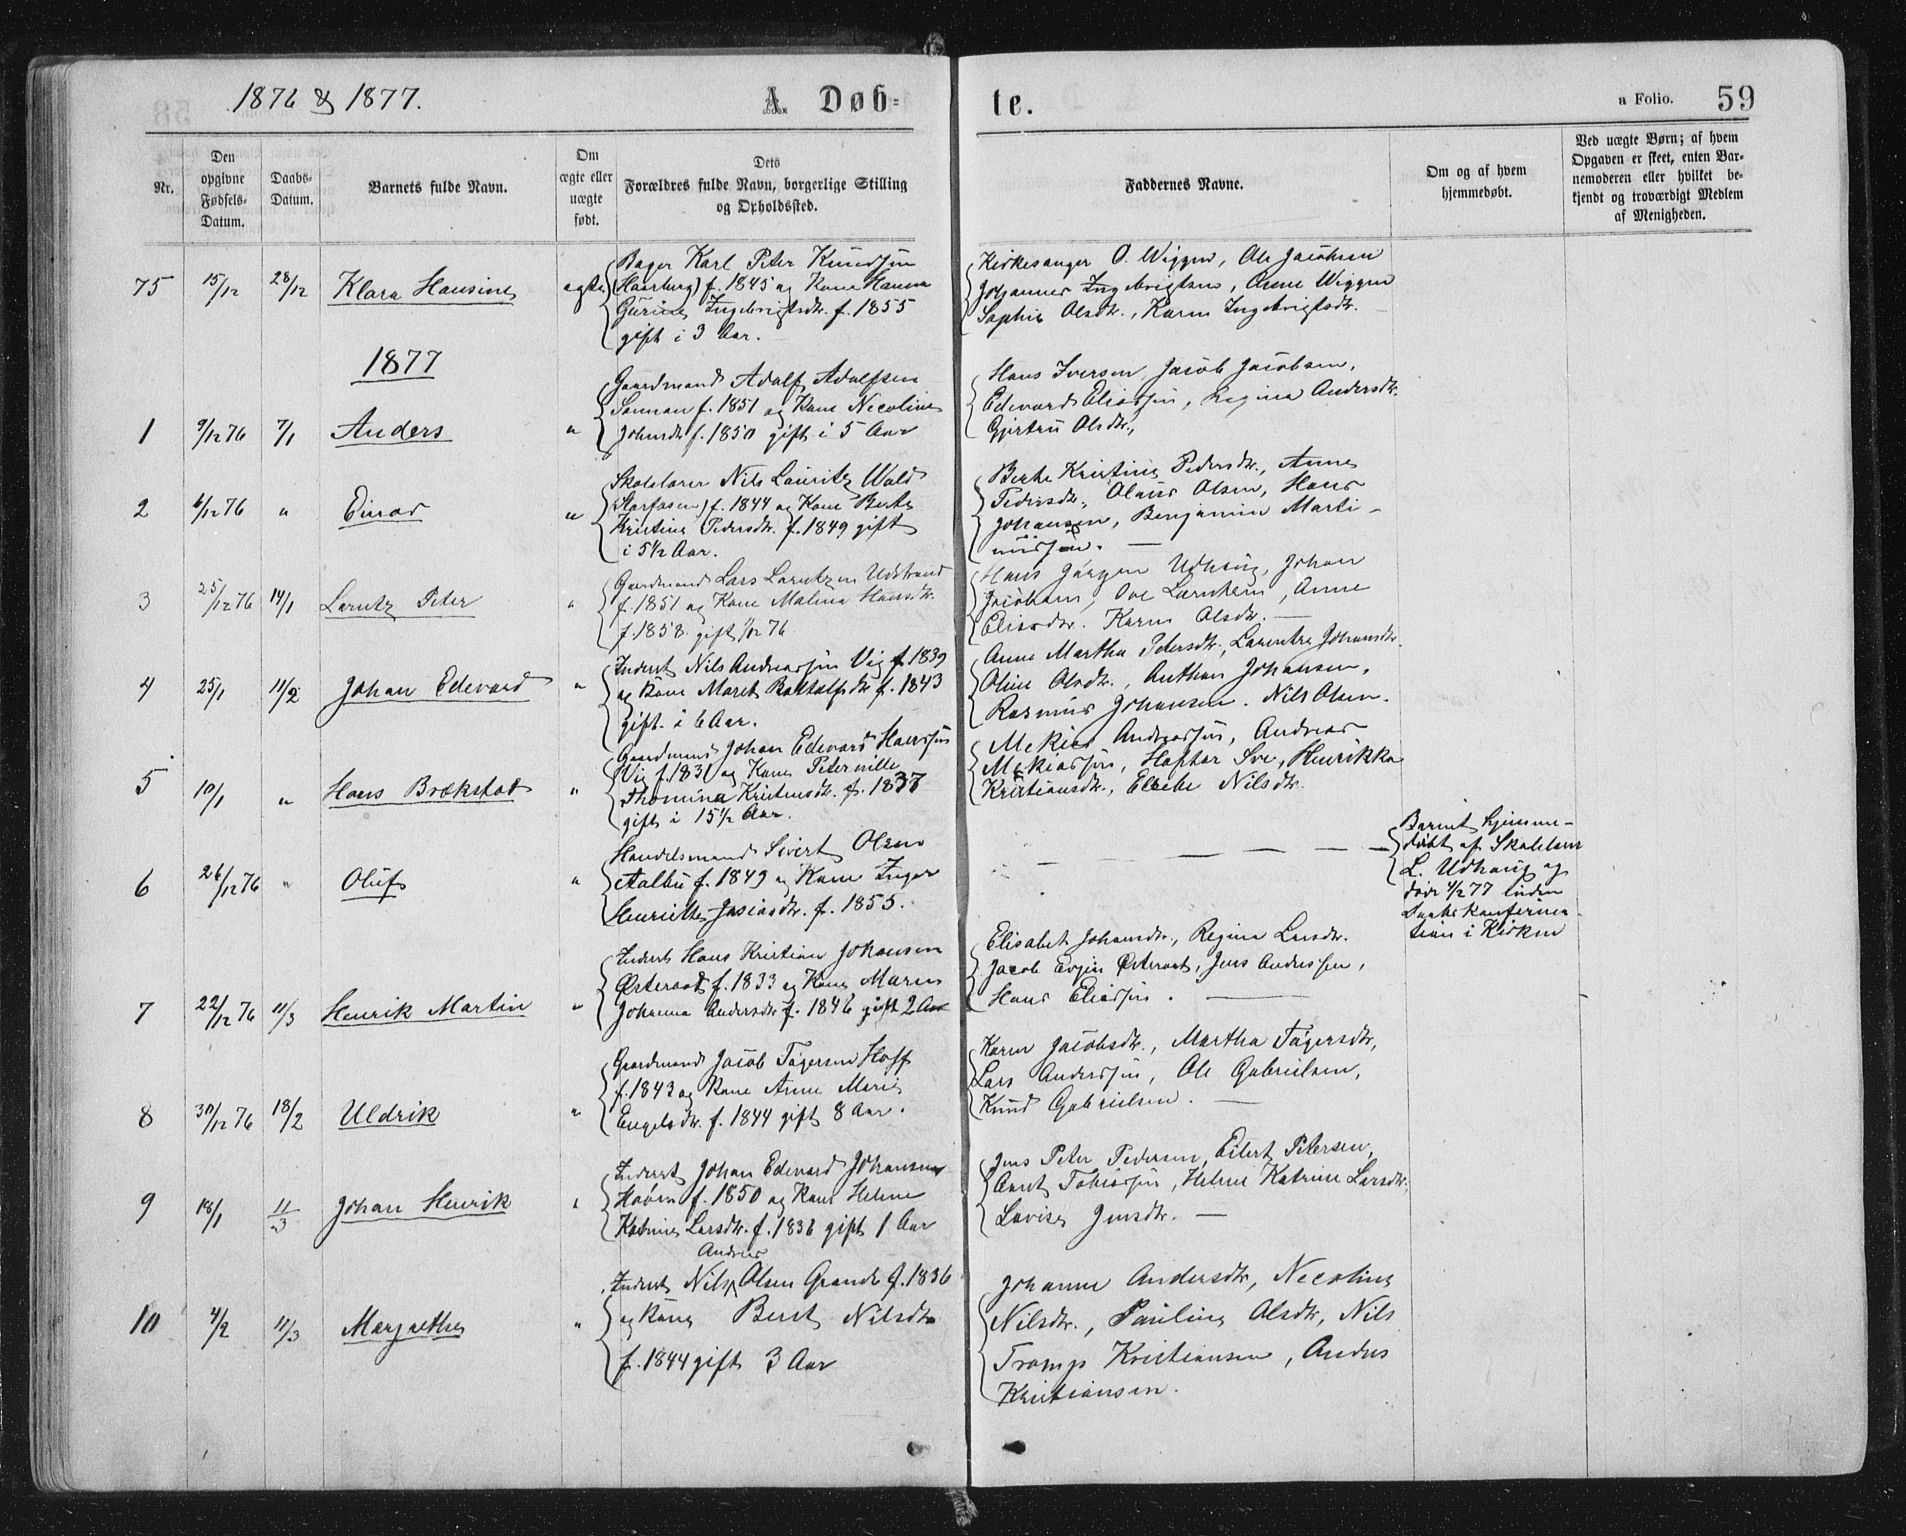 1876 & 1877.
A. Døb-
te.
a Folio. 59
Nr.
Den opgivne Fødsels-Datum.
Daabs-Datum.
Barnets fulde Navn.
Om ægte eller uægte født.
Dets Forældres fulde Navn, borgerlige Stilling og Opholdssted.
Faddernes Navne.
Om og af hvem hjemmedøbt.
Ved uægte Børn; af hvem Opgaven er skeet, enten Barnemoderen eller hvilket bekjendt og troværdigt Medlem af Menigheden.
75 15/12 28/12 Klara Hansine ægte
Bager Karl Peter Knudsen
(Haarberg) f. 1845 og Kone Hanna
Gurine Ingebrigtsdtr. f. 1855
gift i 3 Aar.
Kirkesanger O. Wiggen, Ole Jacobsen
Johannes Ingebrigtsen, Anne Wiggen
Sophie Olsdtr., Karen Ingebrigtsdtr.
1877
1 9/12 76 7/1 Anders "
Gaardmand Adolf Adolfsen
f. 1851 og Kone Necoline
Johnsdtr f. 1850 gift i 5 Aar
Hans Iversen, Jacob Jacobsen,
Edevard Eliassen, Regina Andersdtr.
Gjertru Olsdtr.,
2 6/12 76 " Einar "
Skolelærer Nils Lauritz Wald
f. 1844 og Kone Berte
Kristine Pedersdtr. f. 1849 gift
i 5 1/2 Aar.
Berthe Kristine Pedersdtr., Anne
Pedersdtr., Olaus Olsen, Hans
Johansen, Benjamin Marti-
niussen.
3 25/12 76 14/1 Lorntz Peter "
Gaardmand Lars Lorntzen Udstrand
f. 1851 og Kone Malena Hansdtr.
f. 1858. gift 76.
Hans Jørgen Udhaug, Johan
Jacobsen, Ove Lernhein, Anne
Eliasdtr. Karen Olsdtr.
4 25/1 11/2 Johan Edevard "
Inderst Nils Andreassen Vig f. 1839
og Kone Maret f. 1843
gift i 6 Aar.
Anne Martha Petersdtr., Larentze Johansdtr.
Oline Olsdtr., Anthon Johansen,
Rasmus Johansen. Nils Olsen.
5 10/1 " Hans Brækstad "
Gaardmand Johan Edevard Hanssen
Vig f. 1831 og Kone Peternille
Thomina Kristensdtr. f. 1837
gift i 15 1/2 Aar.
Mekias Andreassen, Andreas
Mekiassen, Henrikka
Kristiansdtr., Nilsdtr.
6 26/12 76 " Oluf "
Handelsmand Sivert Olsen
Aalbu f. 1849 og Kone Inger
Henriette Josiasdtr. f. 1855.
Barnet hjemme-
døbt af Skolelærer
L. Udhaug og
døde 4/2 77 inden
Daabskonfirma-
tion i Kirken
7 22/12 76 11/3 Henrik Martin "
Inderst Hans Kristian Johansen
Østeraat f. 1833 og Kone Maren
Johanna Andersdtr f. 1846 gift 2 Aar
Elisabet Johansdtr., Regina Larsdtr.
Jacob Evjen Østeraat, Jens Andersen,
Hans Eliassen.
8 30/12 76 18/2 Uldrik "
Gaardmand Jacob Tøgersen Hoff
f. 1843 og Kone Anne Marie
Engelsdtr. f. 1844 gift 8 Aar.
Karen Jacobsdtr., Martha Tøgersdtr,
Lars Anderssen, Ole Gabrielsen,
Knud Gabrielsen.
9 18/1 11/3 Johan Henrik "
Inderst Johan Edevard Johansen
Hoven f. 1850 og Kone Helene
Katrine Larsdtr. f. 1836 gift 1 Aar
Jens Peter Pedersen, Eilert Petersen,
Arnt Tobiassen, Helene Katrine Larsdtr.
Lovise Jensdtr.
10 4/2 11/3 Margrethe "
Andreas
Inderst Nils Olsen Grande f. 1836
og Kone Berit Nilsdtr
f. 1844 gift 3 Aar
Johanne Andersdtr, Necoline
Nilsdtr., Pauline Olsdtr, Nils
Tromp Kristiansen, Anders
Kristiansen.